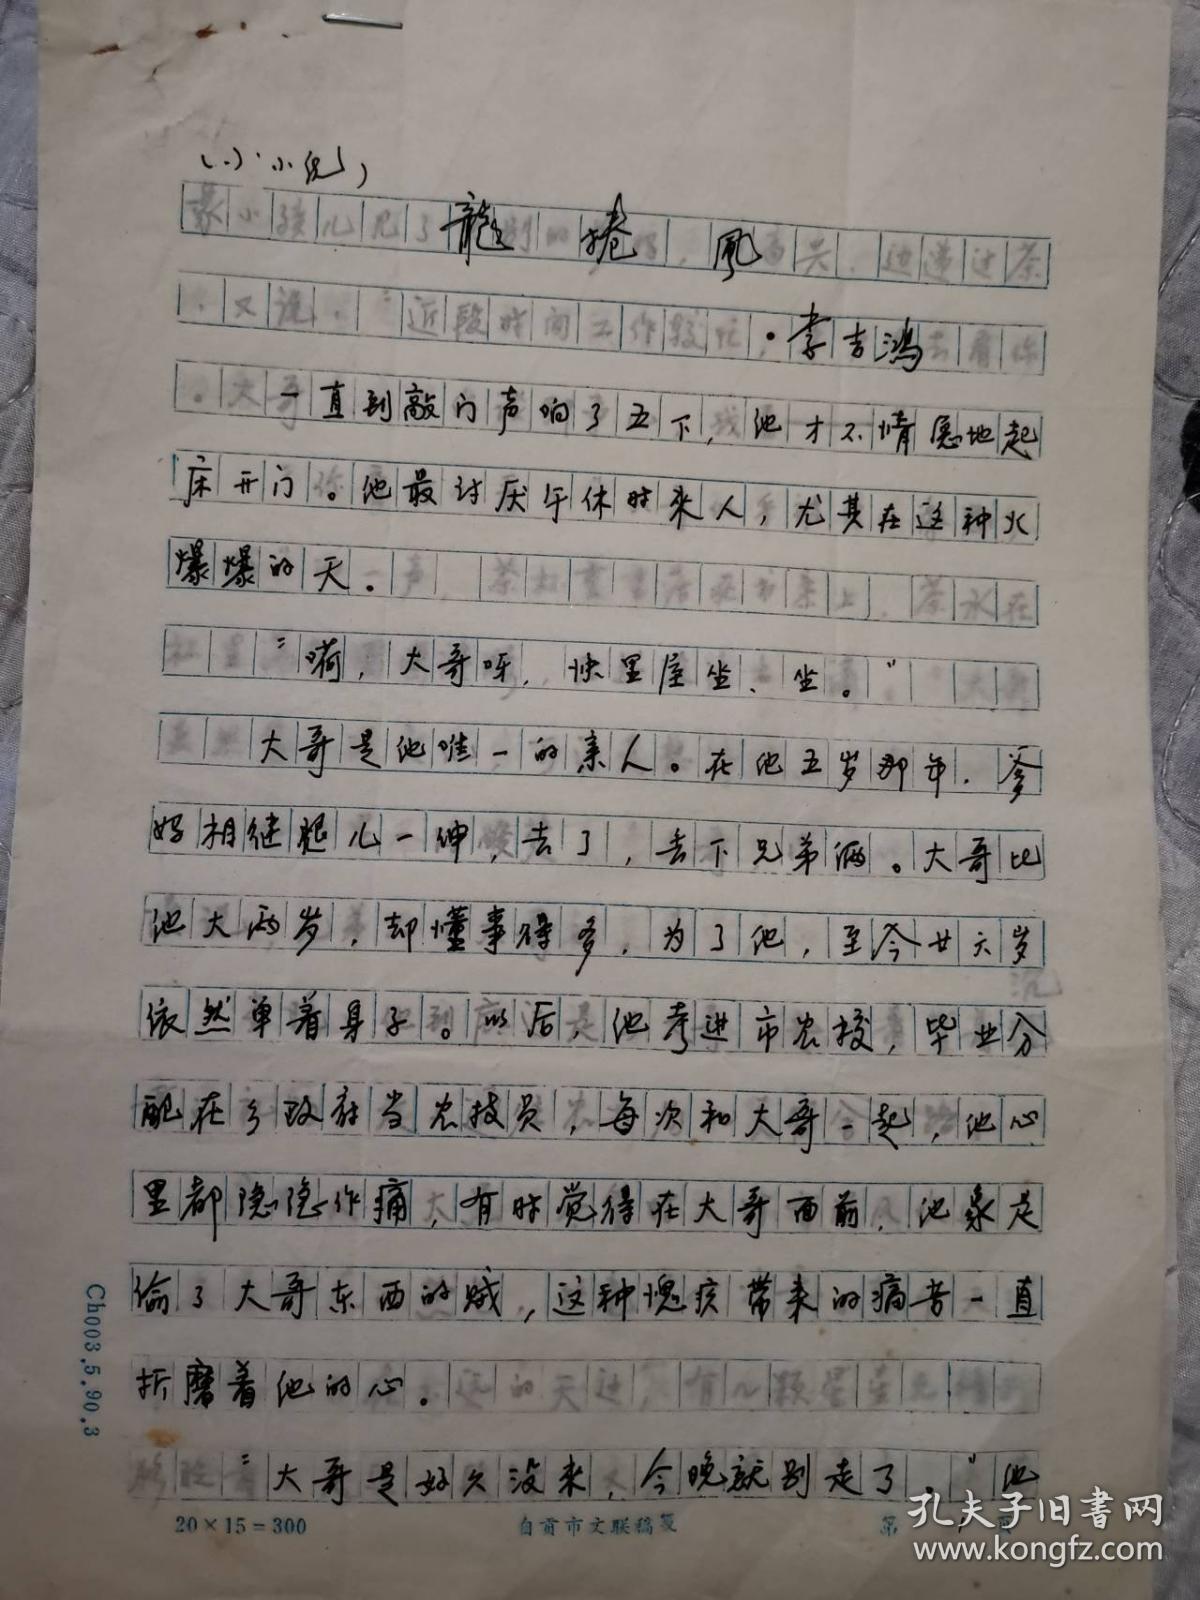 (小说)
龍捲風
·李吉鸿
一直到敲门声响了五下,他才不情愿地起
床开门。他最讨厌午休时来人,尤其在这种火
爆爆的天。
"嗬,大哥呀,快里屋坐、坐。"
大哥是他唯一的亲人。在他五岁那年,爹
妈相继腿儿一伸,去了,丢下兄弟俩。大哥比
他大两岁,却懂事得多,为了他,至今廿六岁
依然单着身子。以后,他考进市农校,毕业分
配在乡政府当农技员,每次和大哥一起,他心
里都隐隐作痛,有时觉得在大哥面前,他象是
偷了大哥东西的贼,这种愧疚带来的痛苦一直
折磨着他的心。
"大哥是好久没来,今晚就别走了。"他
20×15=300 自贡市文联稿笺 第 页
Ch003.5.90.3
孔夫子旧书网
www.kongfz.com